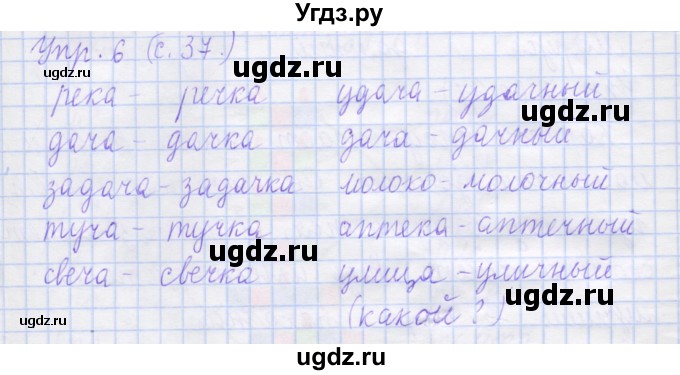 Угдз.ру
Упр. 6 (с. 37.)
ugdz.ru ugdz.ru ugdz.ru
река - речка удача - удачный
ugdz.ru
дача - дачка дача - дачный
ugdz.ru
задача - задачка молоко - молочный
ugdz.ru
туча - тучка аптека - аптечный
ugdz.ru ugdz.ru
свеча - свечка улица - уличный
ugdz.ru
(какой?)
ugdz.ru ugdz.ru
ugdz.ru